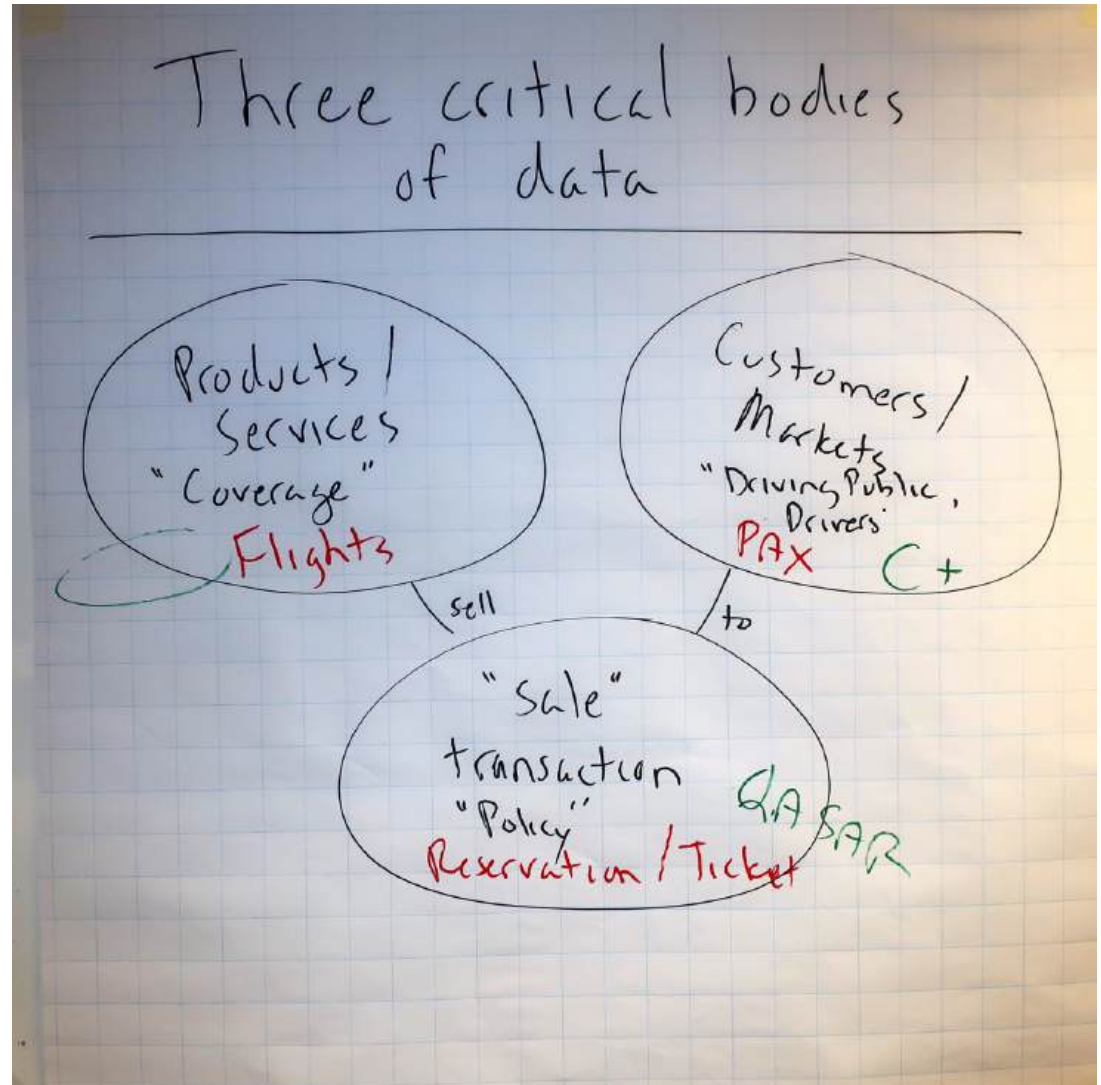 Three critical bodies
of data
Products /
Services
"Coverage"
Flights
Customers /
Markets
"Driving Public,
Drivers"
PAX
C +
sell
to
"Sale"
transaction
"Policy"
Reservation / Ticket
QASAR